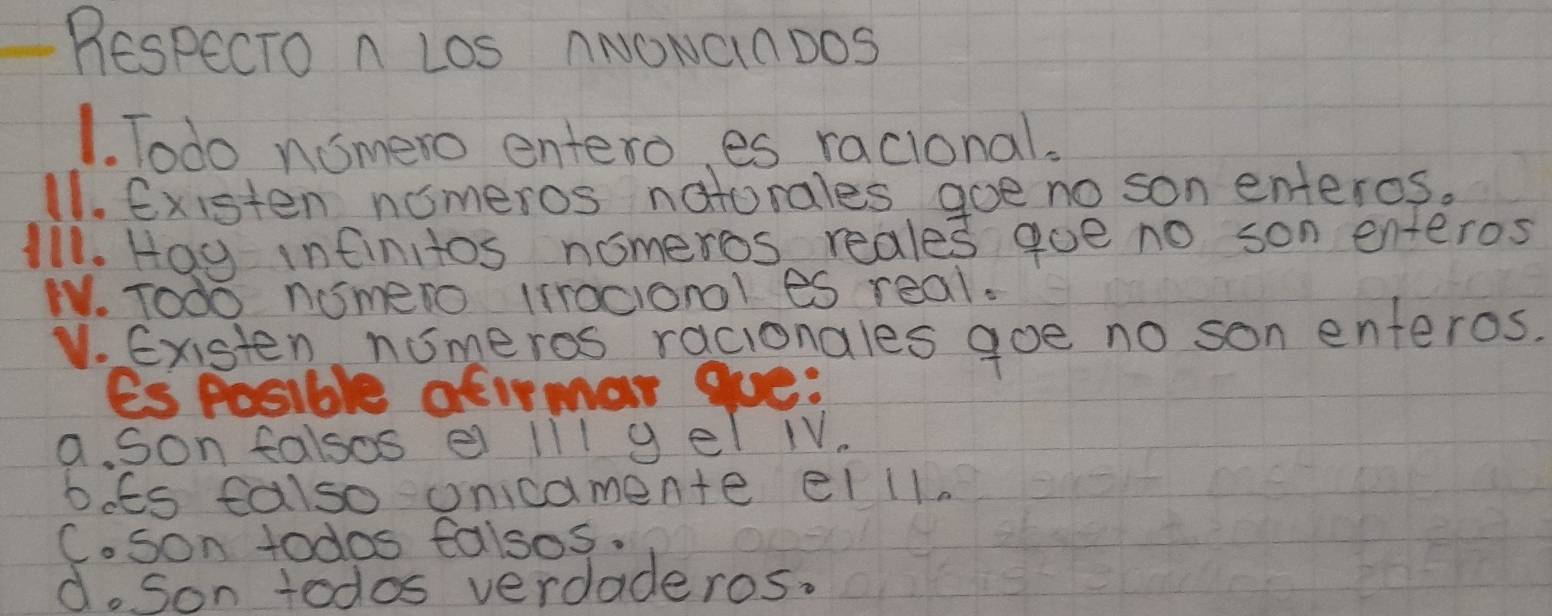 - RESPECTO A LOS ANUNCIADOS
I. Todo número entero es racional.
II. Existen números naturales que no son enteros.
III. Hay infinitos números reales que no son enteros
IV. Todo número irracional es real.
V. Existen números racionales que no son enteros.
Es Posible afirmar que:
a. Son falsos el III y el IV.
b. Es falso unicamente el II.
C. Son todos falsos.
d. Son todos verdaderos.